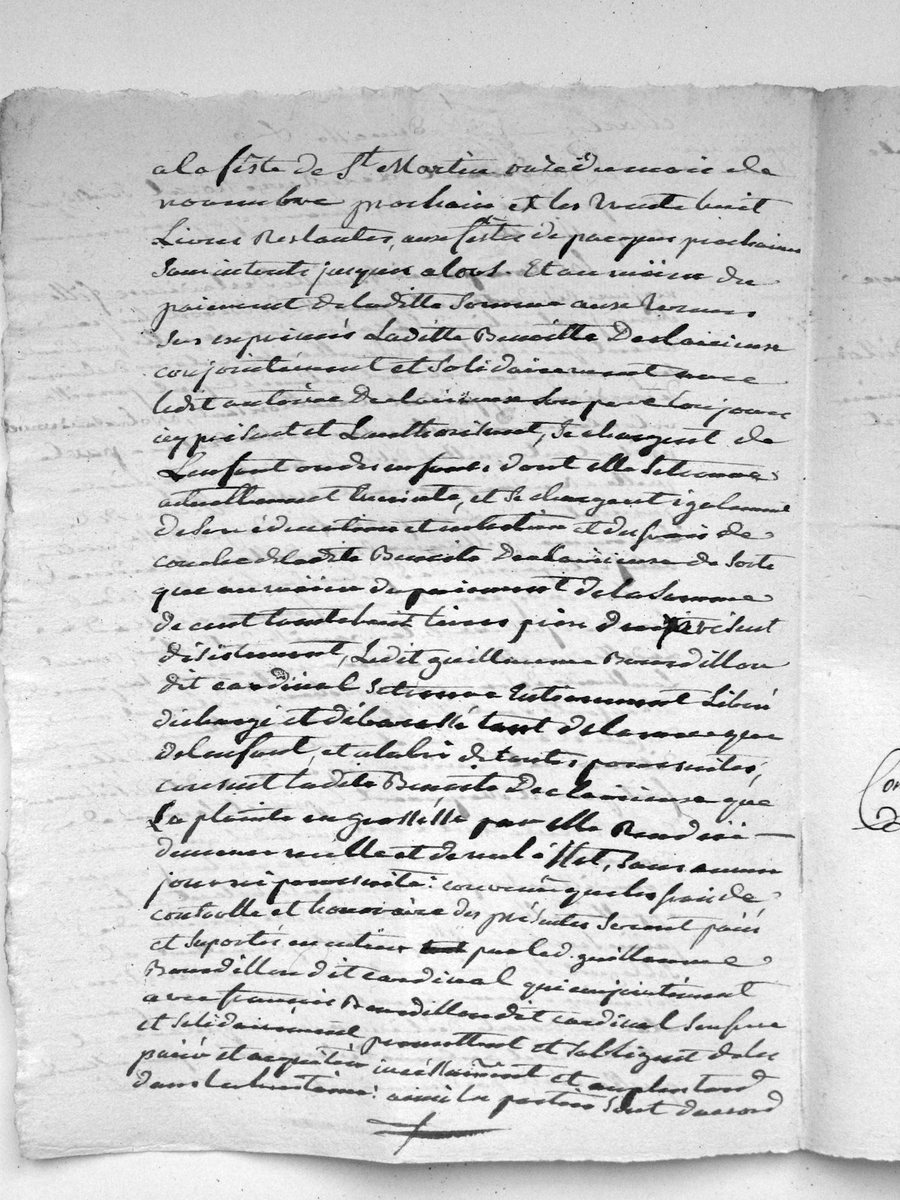 a la fête de St Martin onze du mois de
novembre prochain et les trente huit
Livres Restantes, aux fêtes de pacques prochaines
Sans interets jusques alors. Et au moïen du
paiement de laditte Somme aux termes
Sus exprimés Laditte Benoitte Declairieux
conjointement et Solidairement avec
ledit antoine Declairieux Son pere toujours
icy présent et L'authorisant, Se chargent de
L'enfant ou des enfants dont elle Se trouve
actuellement Enceinte, et Se chargent également
de Son éducation et entretien et des frais de
couche de ladite Benoite Declairieux de Sorte
que au moïen du paiement de la Somme
de cent trente huit livres prix du présent
désistement, Ledit guillaume Bourdillon
dit cardinal Se trouve Entierement Liberé
déchargé et débarassé tant de la mere que
de l'enfant, et a l'abri de toutes poursuites,
consent ladite Benoite Declairieux que
La plainte en grossesse par elle Rendue
demeure nulle et de nul éffet, Sans aucun
jour ni poursuite : convenu que les frais de
controlle et honoraire des présentes Seront païés
et Suportés en entier par led. guillaume
Bourdillon dit cardinal qui conjointement
avec françois Bourdillon dit cardinal Son frere
et Solidairement promettent et S'obligent de les
païer et acquitter incéssament et au plus tard
dans la huitaine : ainsi les parties Sont d'accord
Con